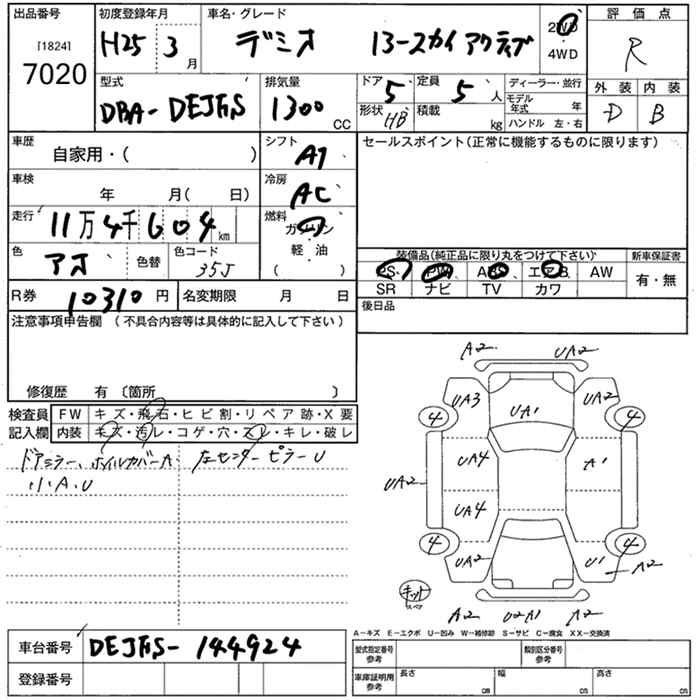 出品番号 初度登録年月 車名・グレード 評価点
[1824]
7020 H25 3 月 デミオ 13-スカイアクティブ 2WD 4WD R
型式 排気量 ドア 定員 ディーラー・並行 外装 内装
DBA-DEJFS 1300 CC 5 5 人 モデル年式 年 D B
形状 HB 積載 kg ハンドル 左・右
車歴 シフト セールスポイント(正常に機能するものに限ります)
自家用・( ) AT
車検 冷房
年 月( 日) AC
走行 燃料
11万4千604 km ガソリン
色 色替 色コード 軽・油
アオ 35J ( )
装備品(純正品に限り丸をつけて下さい) 新車保証書
PS PW ABS エアB AW 有・無
SR ナビ TV カワ
R券 10310 円 名変期限 月 日 後日品
注意事項申告欄 (不具合内容等は具体的に記入して下さい)
修復歴 有 〔箇所 〕
検査員 FW キズ・飛石・ヒビ割・リペア跡・X要
記入欄 内装 キズ・汚レ・コゲ・穴・スレ・キレ・破レ
ドアミラー、ホイルカバーA 左センターピラーU
小A.U
A2 UA2
UA3 UA1 UA2
4 4
UA4 A1
UA2
UA4
4 4
UA2 U1 A2
キット
スペア
A2 U2A1 A2
A-キズ E-エクボ U-凹み W-補修跡 S-サビ C-腐食 XX-交換済
車台番号 DEJFS-144924
型式指定番号 参考 類別区分番号 参考
登録番号
車庫証明用 参考 長さ cm 幅 cm 高さ cm